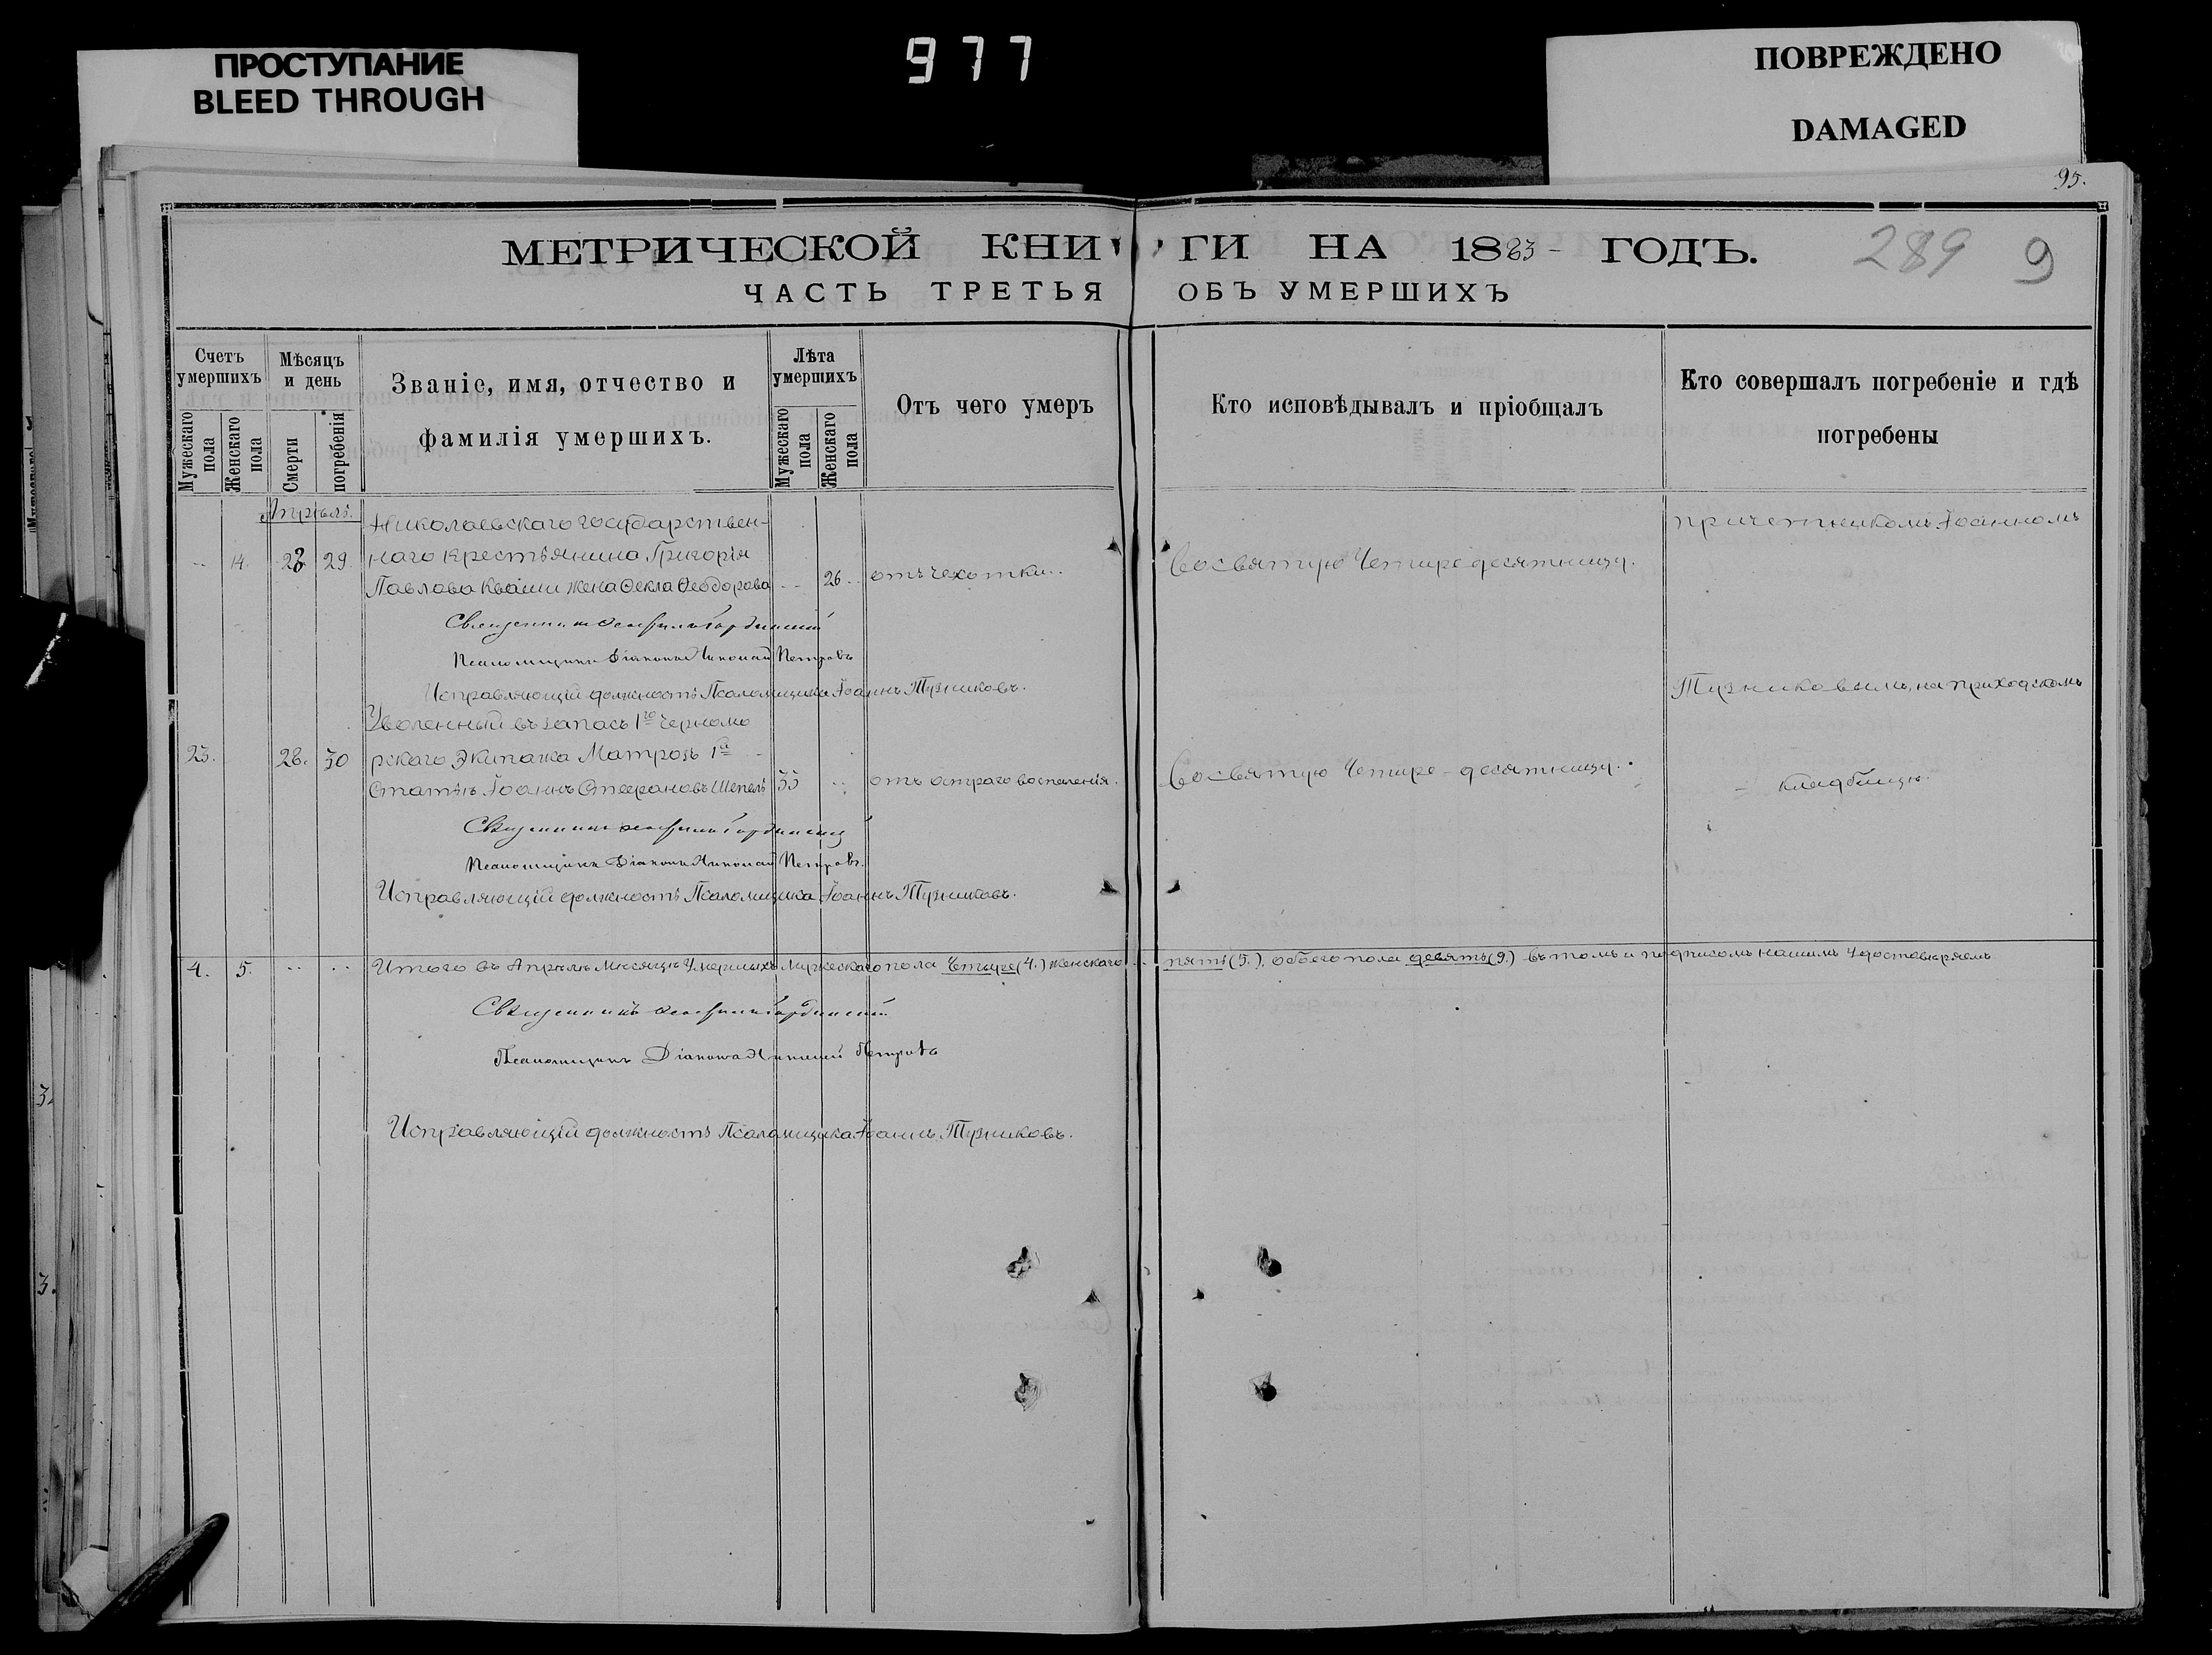 ПРОСТУПАНИЕ
BLEED THROUGH
977
ПОВРЕЖДЕНО
DAMAGED
95.
МЕТРИЧЕСКОЙ КНИГИ НА 1883 ГОДЪ.
289 9
ЧАСТЬ ТРЕТЬЯ ОБЪ УМЕРШИХЪ
Счетъ умершихъ
Мужескаго пола
Женскаго пола
Мѣсяцъ и день
Смерти
погребенія
Званіе, имя, отчество и фамилія умершихъ.
Лѣта умерщихъ
Мужескаго пола
Женскаго пола
Отъ чего умеръ
Кто исповѣдывалъ и пріобщалъ
Кто совершалъ погребеніе и гдѣ погребены
Апрѣль.
Николаевскаго государствен-
14. 29. наго крестьянина Григорія
Павлова Кваши жена Ѳекла Ѳеодорова 26. отъ чахотки.
Во святую Четыредесятницу.
причетникомъ Іоанномъ
Священникъ
Псаломщикъ Діаконъ Николай Петровъ
Исправляющій должность Псаломщика Іоаннъ Тузниковъ.
Тузниковымъ, на приходскомъ
Уволенный въ запасъ 1го Черномо
23. 28. 30 рскаго Экипажа Матрозъ 1й
Статьи Іоаннъ Стефановъ Шепель 33 отъ остраго воспаленія.
Во святую Четыре-десятницу.
кладбищѣ.
Священникъ
Псаломщикъ Діаконъ Николай Петровъ.
Исправляющій должность Псаломщика Іоаннъ Тузниковъ.
4. 5. Итого въ Апрѣлѣ Мѣсяцѣ Умершихъ Мужескаго пола Четыре (4.) женскаго пять (5.), обоего пола девять (9.) въ томъ и подписомъ нашимъ Удостовѣряемъ
Священникъ
Псаломщикъ Діаконъ Николай Петровъ
Исправляющій должность Псаломщика Іоаннъ Тузниковъ.